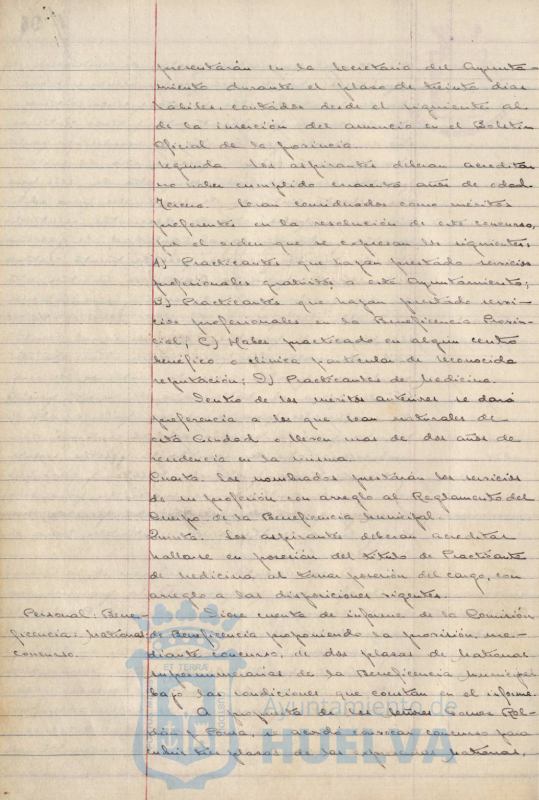 presentarán en la Secretaría del Ayunta-
miento durante el plazo de treinta días
hábiles, contados desde el siguiente al
de la inserción del anuncio en el Boletín
Oficial de la provincia.
Segunda. Los aspirantes deberan acreditar
no haber cumplido cuarenta años de edad.
Tercero. Seran considerados como méritos
preferentes en la resolución de este concurso,
por el orden que se expresan los siguientes:
A) Practicantes que hayan prestado servicios
profesionales gratuitos a este Ayuntamiento;
B) Practicantes que hayan prestado servi-
cios profesionales en la Beneficencia Provin-
cial; C) Haber practicado en algun centro
benéfico o clínica particular de reconocida
reputación; D) Practicantes de Medicina.
Dentro de los méritos anteriores se dará
preferencia a los que sean naturales de
esta Ciudad o lleven mas de dos años de
residencia en la misma.
Cuarta. Los nombrados prestarán los servicios
de su profesión con arreglo al Reglamento del
Cuerpo de la Beneficencia Municipal.
Quinta. Los aspirantes deberan acreditar
hallarse en posesión del título de Practicante
de Medicina al tomar posesión del cargo, con
arreglo a las disposiciones vigentes.
Personal: Bene-
ficencia: Matronas:
concurso.
Diose cuenta de informe de la Comisión
de Beneficencia proponiendo la provisión, me-
diante concurso, de dos plazas de Matronas
supernumerarias de la Beneficencia Municipal
bajo las condiciones que constan en el informe.
A propuesta de los señores Gomez Rol-
dán y Poma, se acordó convocar concurso para
cubrir plazas de las Matronas,
ET TERRÆ
Ayuntamiento de
HUELVA